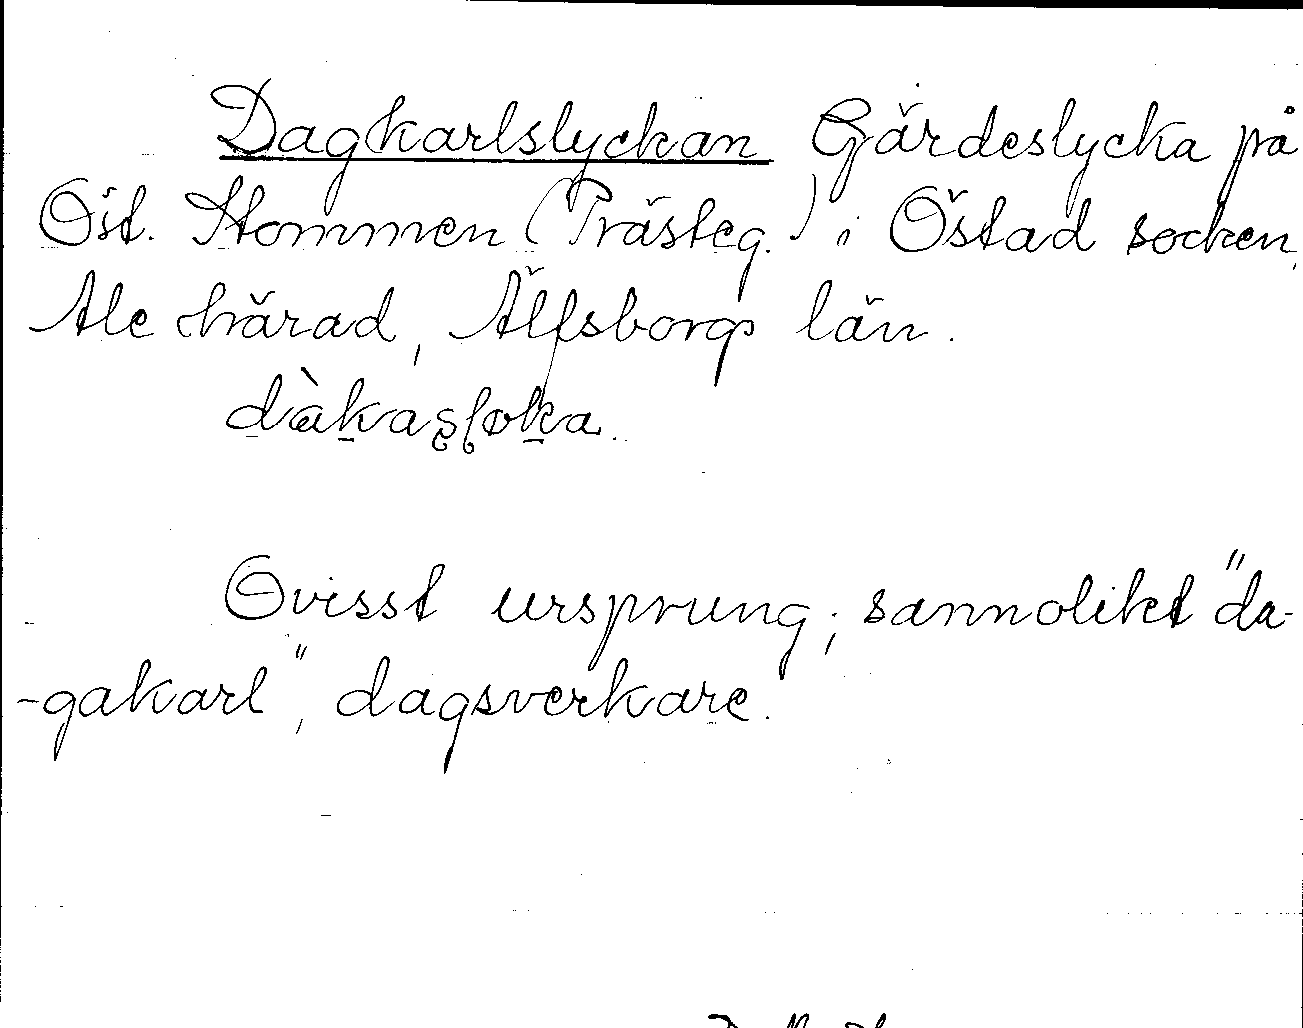 Dagkarlslyckan Gärdeslycka på
Öst. Stommen (Prästeg.) i Östad socken,
Ale härad, Älfsborgs län.
dàkaʂløka.
Ovisst ursprung; sannolikt "da-
-gakarl", dagsverkare.